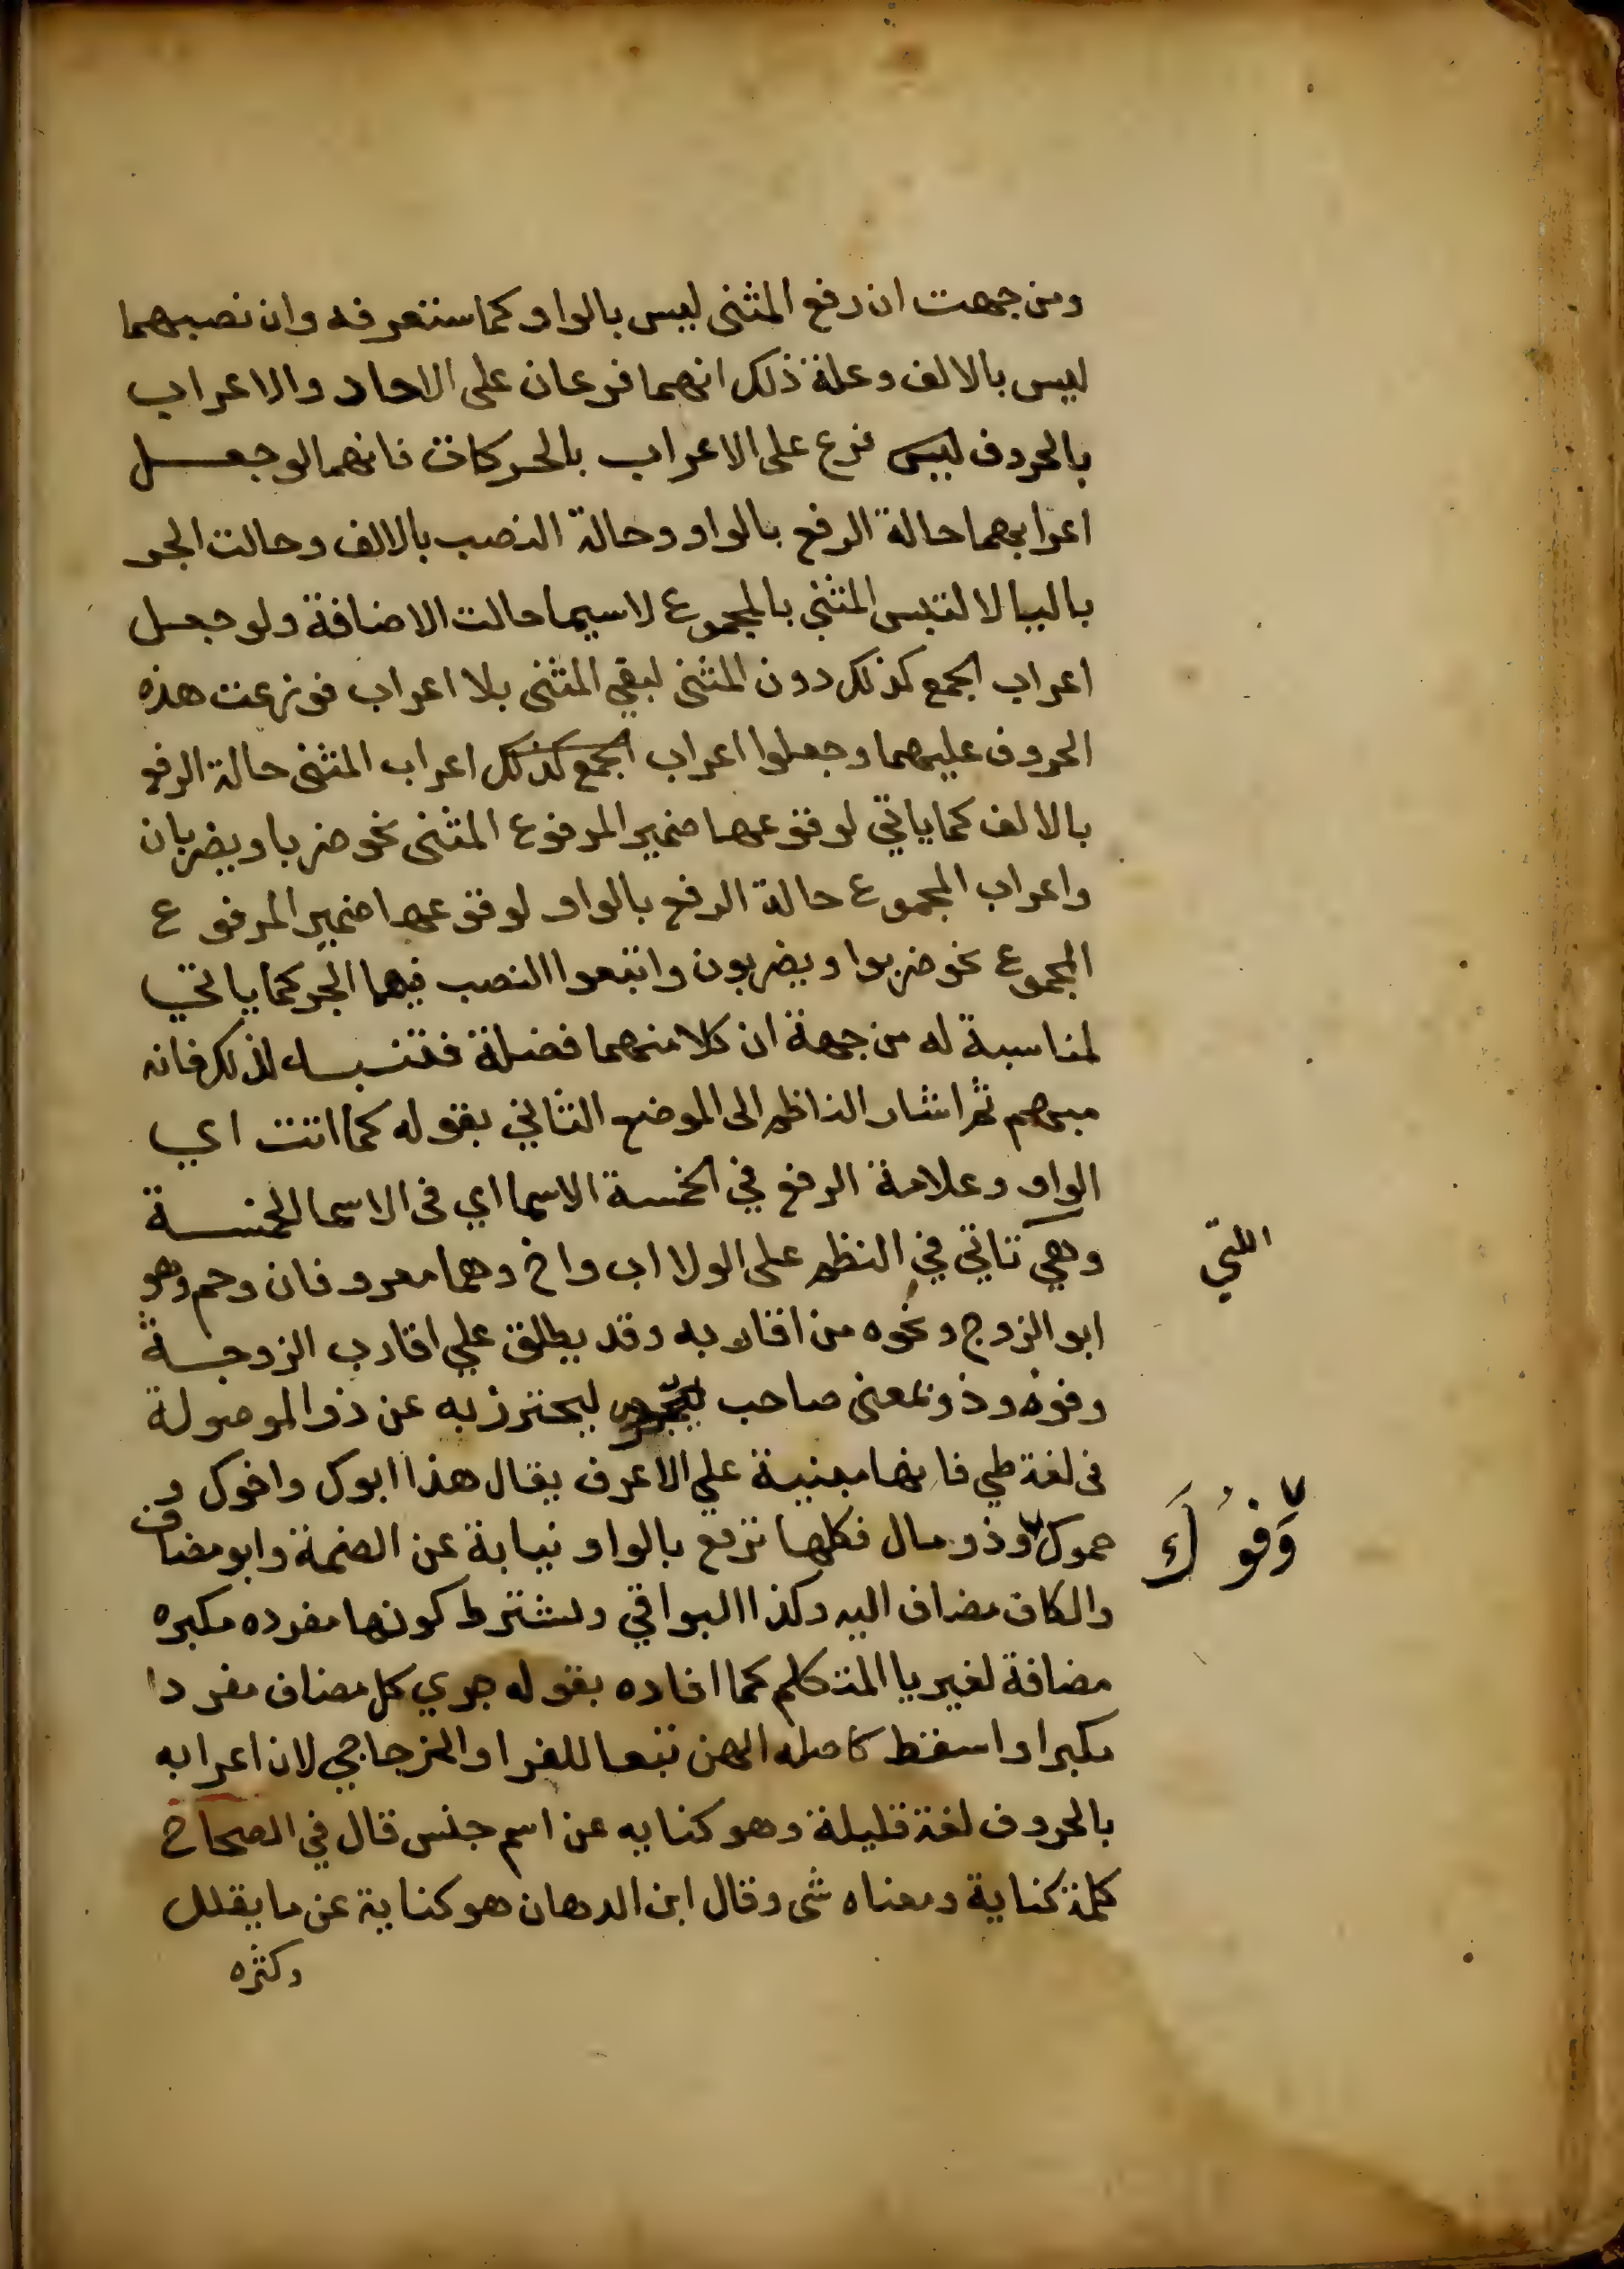 ومن جهت ان رفع المثنى ليس بالواو كما ستعرفه وان نصبهما
ليس بالالف وعلة ذلك انهما فرعان على الاحاد والاعراب
بالحروف ليس فرع على الاعراب بالحركات فانهما لو جعل
اعرابهما حالة الرفع بالواو وحالة النصب بالالف وحالت الجر
باليا لالتبس المثنى بالمجموع لاسيما حالت الاضافة ولو جعل
اعراب الجمع كذلك دون المثنى لبقي المثنى بلا اعراب فوزعت هذه
الحروف عليهما وجعلوا اعراب الجمع كذلك اعراب المثنى حالة الرفع
بالالف كما ياتي لوقوعها ضمير المرفوع المثنى نحو ضربا ويضربان
واعراب المجموع حالة الرفع بالواو لوقوعها ضمير المرفوع
المجموع نحو ضربوا ويضربون واتبعوا النصب فيهما الجر كما ياتي
لمناسبة له من جهة ان كلا منهما فضلة فتنبه لذلك فانه
مبهم ثم اشار الناظم الى الموضع الثاني بقوله كما اتت اي
الواو وعلامة الرفع في الخمسة الاسما اي في الاسما الخمسة
اللتي
وهي تاتي في النظم على الولا اب واخ وهما معروفان وحم وهو
ابو الزوج ونحوه من اقاربه وقد يطلق علي اقارب الزوجة
وفوه وذو بمعنى صاحب ليحترز به عن ذو الموصولة
في لغة طي فانها مبنية علي الاعرف يقال هذا ابوك واخوك و
حموك وذو مال فكلها ترفع بالواو نيابة عن الضمة وابو مضاف
وَفوُكَ
والكاف مضاف اليه وكذا البواقي ويشترط كونها مفرده مكبره
مضافة لغير يا المتكلم كما افاده بقوله جري كل مضاف مفردا
مكبرا واسقط كاصله الهن تبعا للفرا والزجاجي لان اعرابه
بالحروف لغة قليلة وهو كنايه عن اسم جنس قال في الصحاح
كلمة كناية ومعناه شى وقال ابن الدهان هو كناية عن ما يقلل
وكثره